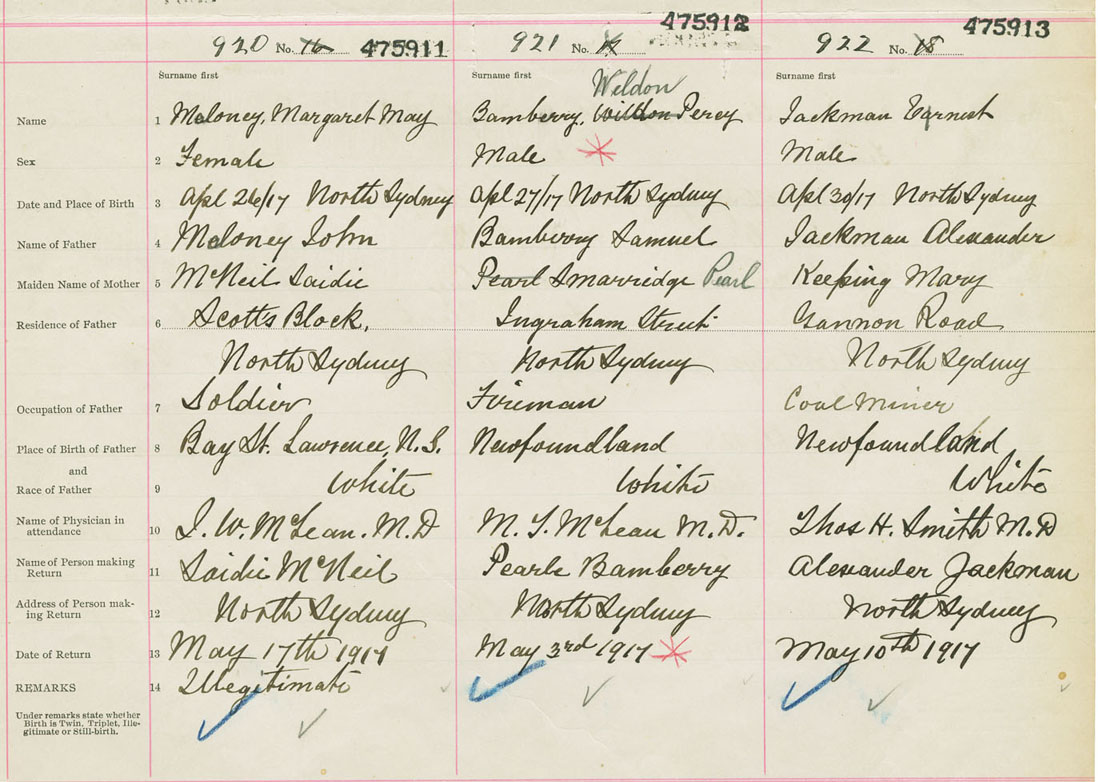 475911 475912 475913
920 No. 16 921 No. 922 No. 18
Surname first Surname first Surname first
Weldon
Name 1 Moloney, Margaret May Bamberry, Percy Jackman Earnest
Sex 2 Female Male Male
Date and Place of Birth 3 Apl 26/17 North Sydney Apl 27/17 North Sydney Apl 30/17 North Sydney
Name of Father 4 Moloney John Bamberry Samuel Jackman Alexander
Maiden Name of Mother 5 McNeil Saidie Pearl Smarridge Pearl Keeping Mary
Residence of Father 6 Scotts Block, Ingraham Street Gannon Road
North Sydney North Sydney North Sydney
Occupation of Father 7 Soldier Fireman Coal Miner
Place of Birth of Father 8 Bay St. Lawrence, N.S. Newfoundland Newfoundland
and
Race of Father 9 White White White
Name of Physician in
attendance 10 J. W. McLean. M.D M. T. McLean M.D. Thos H. Smith M.D
Name of Person making
Return 11 Saidie McNeil Pearle Bamberry Alexander Jackman
Address of Person mak-
ing Return 12 North Sydney North Sydney North Sydney
Date of Return 13 May 17th 1917 May 3rd 1917 May 10th 1917
REMARKS 14 Illegitimate
Under remarks state whether
Birth is Twin, Triplet, Ille-
gitimate or Still-birth.